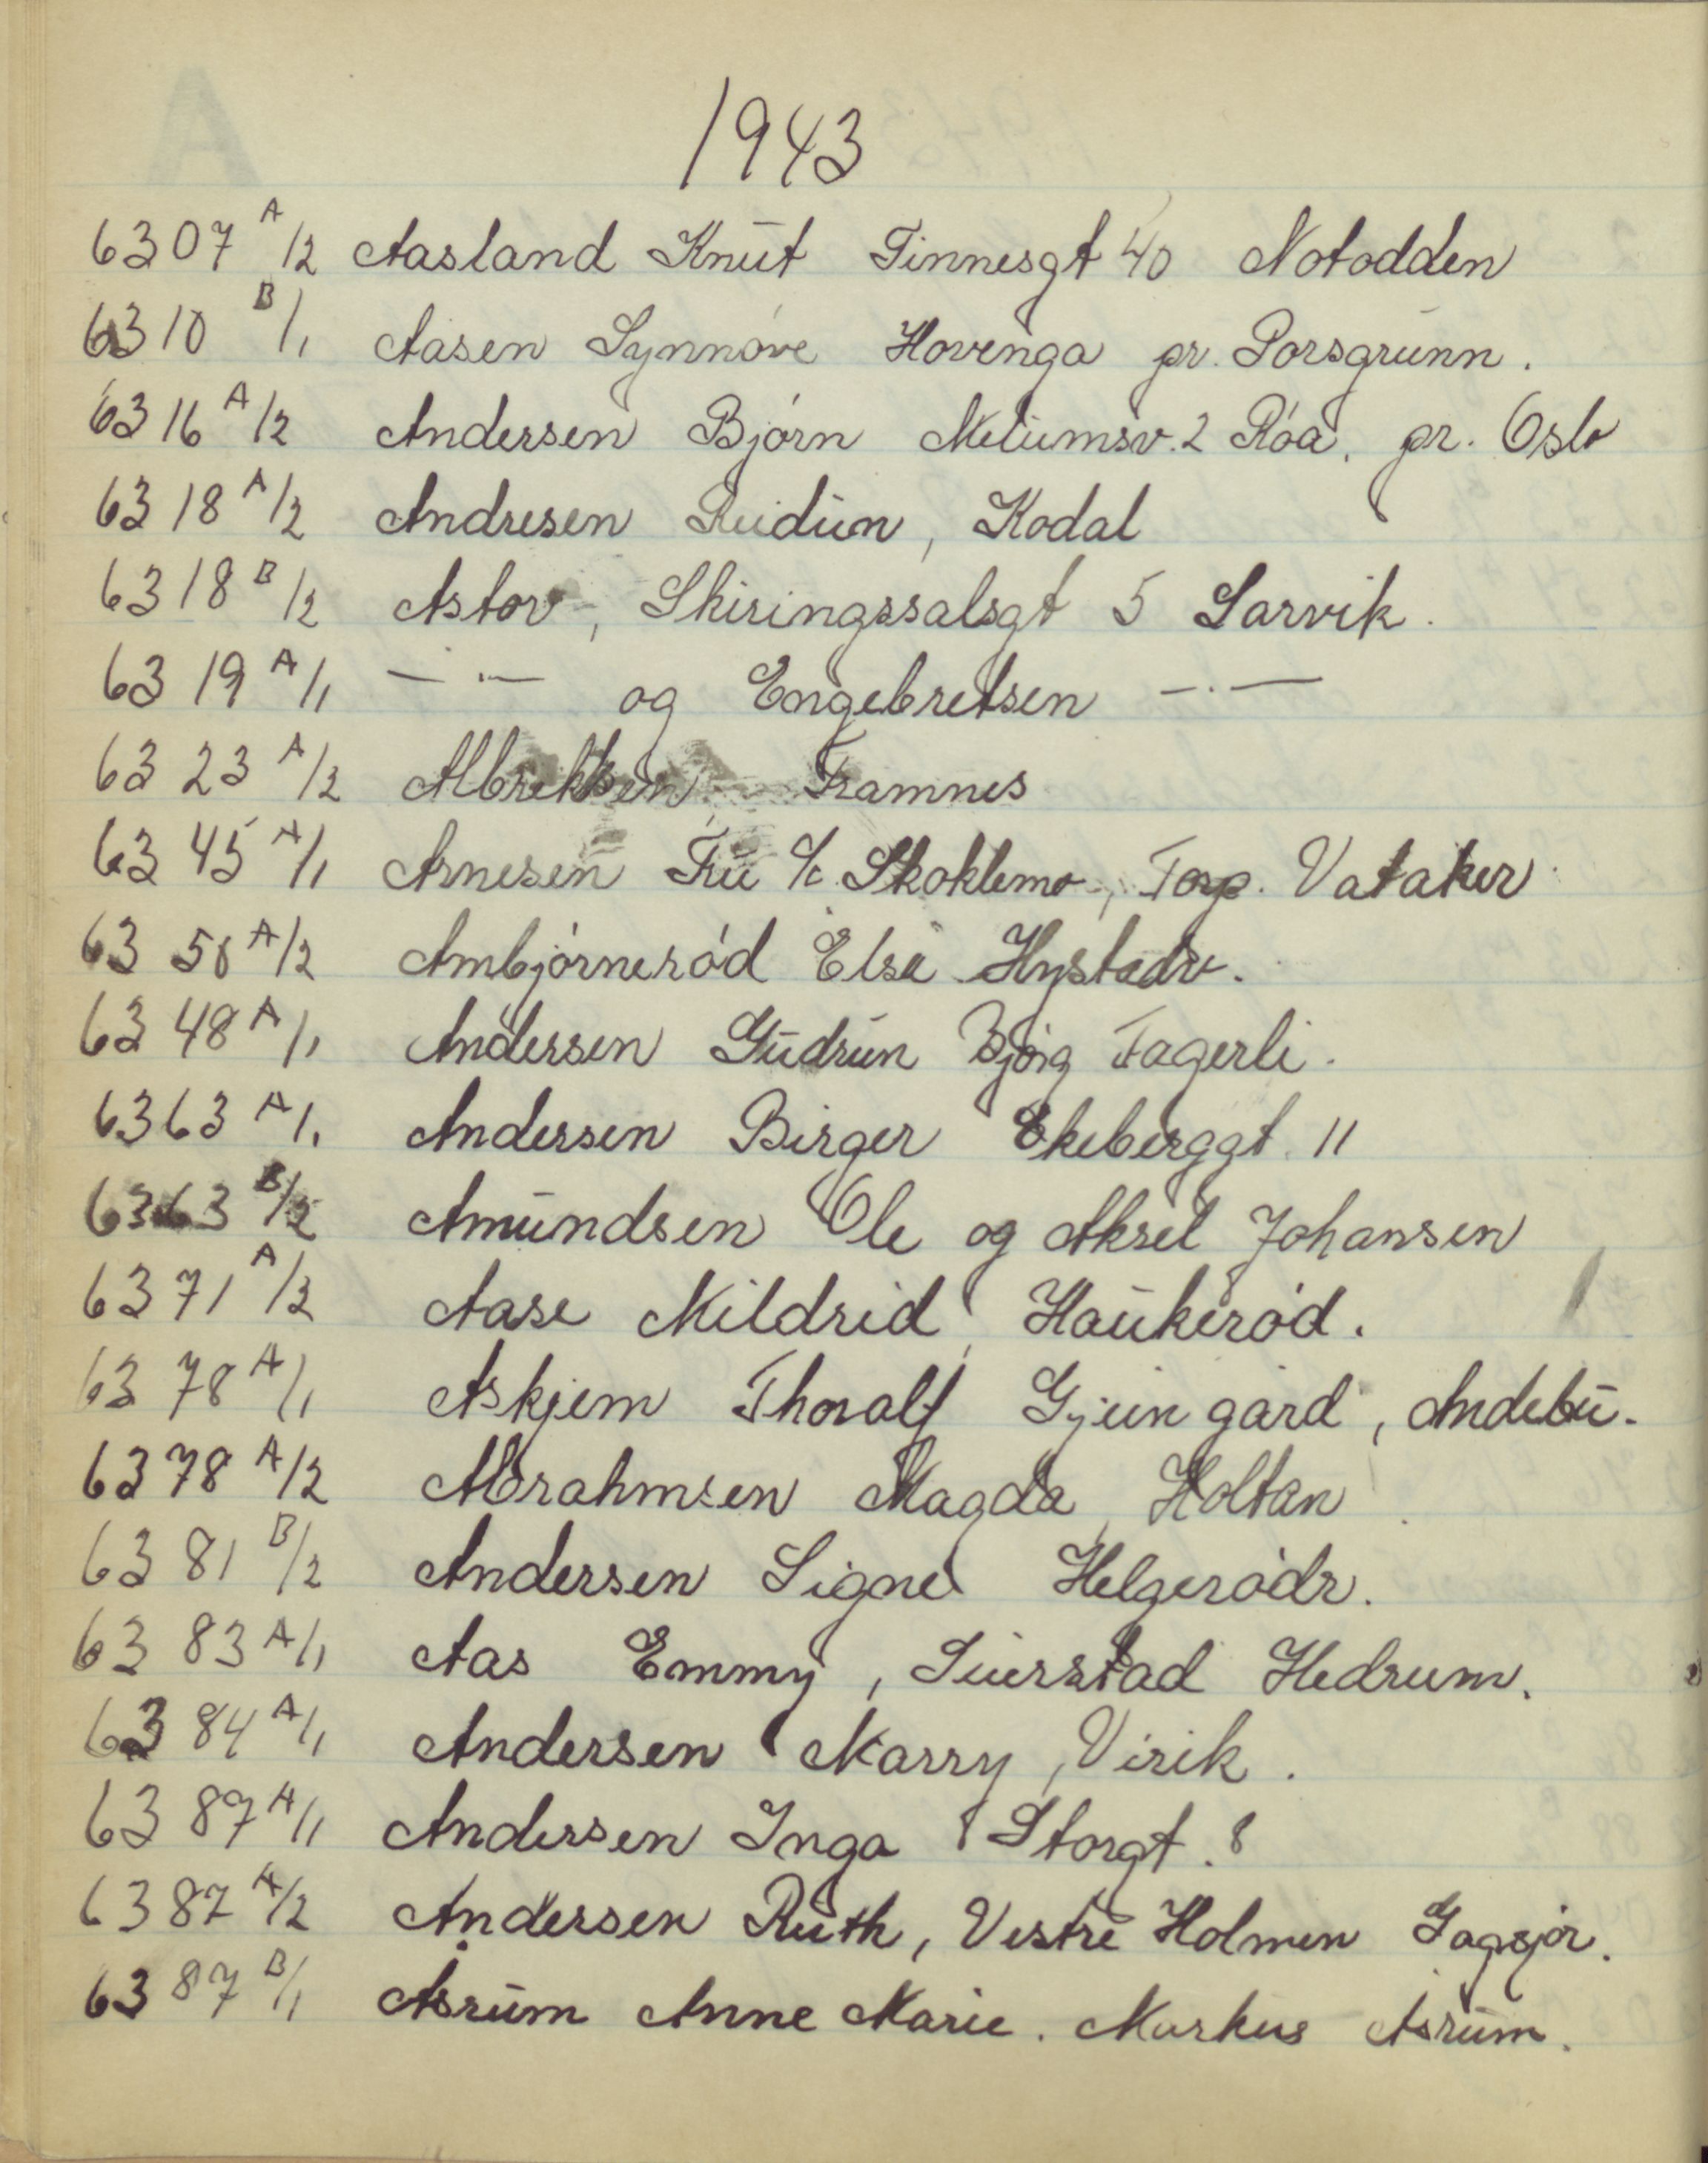 1943
6307 A/2 Aasland Knut Tinnesgt 40 Notodden
6310 B/1 Aasen Synnóve Hovenga pr. Porsgrunn.
6316 A/2 Andersen Bjórn Meliumsv. 2 Róa. pr. Oslo
6318 A/2 Andresen Reidun, Kodal
6318 B/2 Astor, Skiringssalsgt 5 Larvik.
6319 A/1 — · — og Engebretsen — · —
6323 A/2 Albrektsen, Framnes
6345 A/1 Arnesen Fru c/o Skoklemo, Torp. Vataker
6350 A/2 Ambjórneród Else Hystadv.
6348 A/1 Andersen Gudrun Bjórg Fagerli.
6363 A/1. Andersen Birger Ekeberggt. 11
6363 B/2 Amundsen Ole og Aksel Johansen
6371 A/2 Aase Mildrid, Haukeród.
6378 A/1 Askjem Thoralf Gjein gård, Andebu.
6378 A/2 Abrahmsen Magda, Holtan.
6381 B/2 Andersen Signe Helgeródr.
6383 A/1 Aas Emmy, Seierstad Hedrum.
6384 A/1 Andersen Marry, Virik.
6387 A/1 Andersen Inga Storgt. 8
6387 A/2 Andersen Ruth, Vestre Holmen Gogsjór.
6387 B/1 Åsrum Anne Marie. Markus Åsrum.